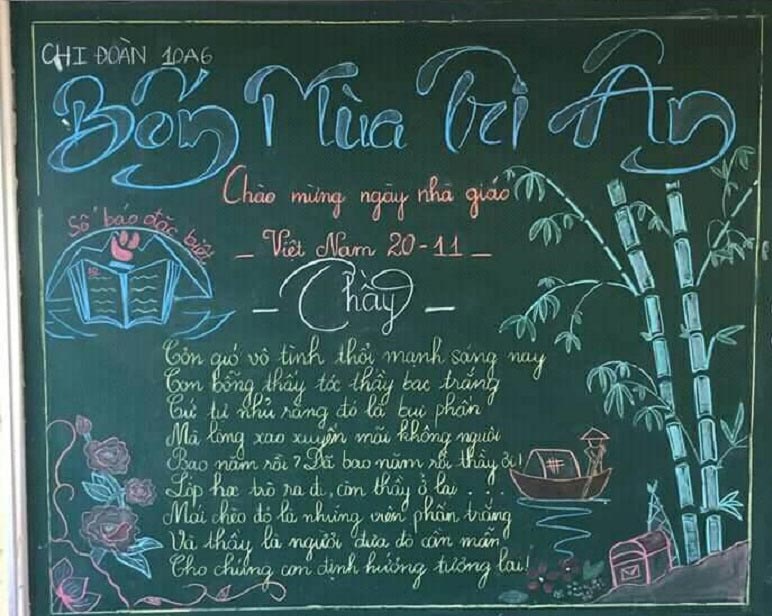 CHI ĐOÀN 10A6
Bốn Mùa Tri Ân
Chào mừng ngày nhà giáo
Số báo đặc biệt
_ Việt Nam 20-11 _
- Thầy -
Cơn gió vô tình thổi mạnh sáng nay
Con bỗng thấy tóc thầy bạc trắng
Cứ tự nhủ rằng đó là bụi phấn
Mà lòng xao xuyến mãi không nguôi
Bao năm rồi? Đã bao năm rồi thầy ơi!
Lớp học trò ra đi, còn thầy ở lại . . .
Mái chèo đó là những viên phấn trắng
Và thầy là người đưa đò cần mẫn
Cho chúng con định hướng tương lai!